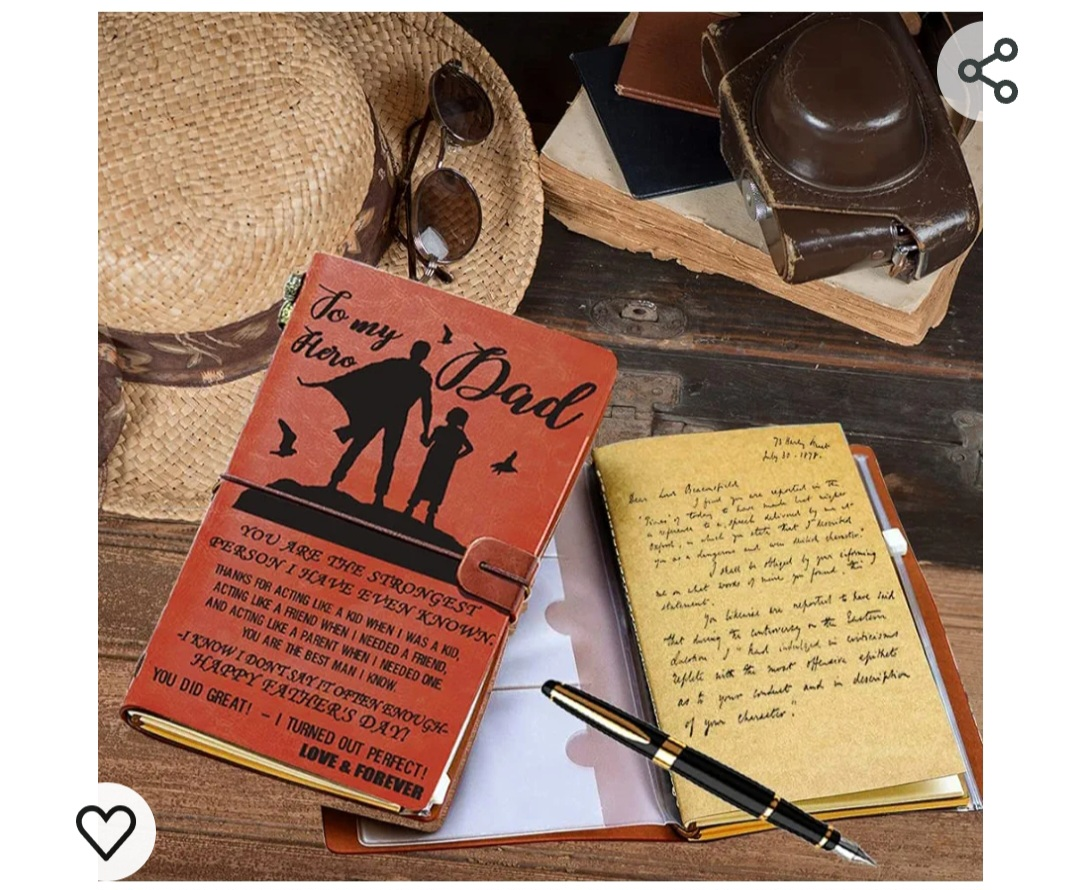 To my
Hero
Dad
YOU ARE THE STRONGEST
PERSON I HAVE EVEN KNOWN
THANKS FOR ACTING LIKE A KID WHEN I WAS A KID,
ACTING LIKE A FRIEND WHEN I NEEDED A FRIEND,
AND ACTING LIKE A PARENT WHEN I NEEDED ONE
YOU ARE THE BEST MAN I KNOW.
-I KNOW I DON'T SAY IT OFTEN ENOUGH-
HAPPY FATHER'S DAY!
YOU DID GREAT! - I TURNED OUT PERFECT!
LOVE & FOREVER
73 Harley Street
July 30 - 1878.
Dear Lord Beaconsfield
I find you are reported in the
"Times" of today to have made last night
a reference to a speech delivered by me at
Oxford, in which you state that I described
you as a dangerous and character."
I shall be obliged by your informing
me on what words of mine you found this
statement.
You likewise are reported to have said
that during the controversy on the Eastern
Question I "had indulged in criticisms
replete with the most offensive epithets
as to your conduct and in description
of your character."